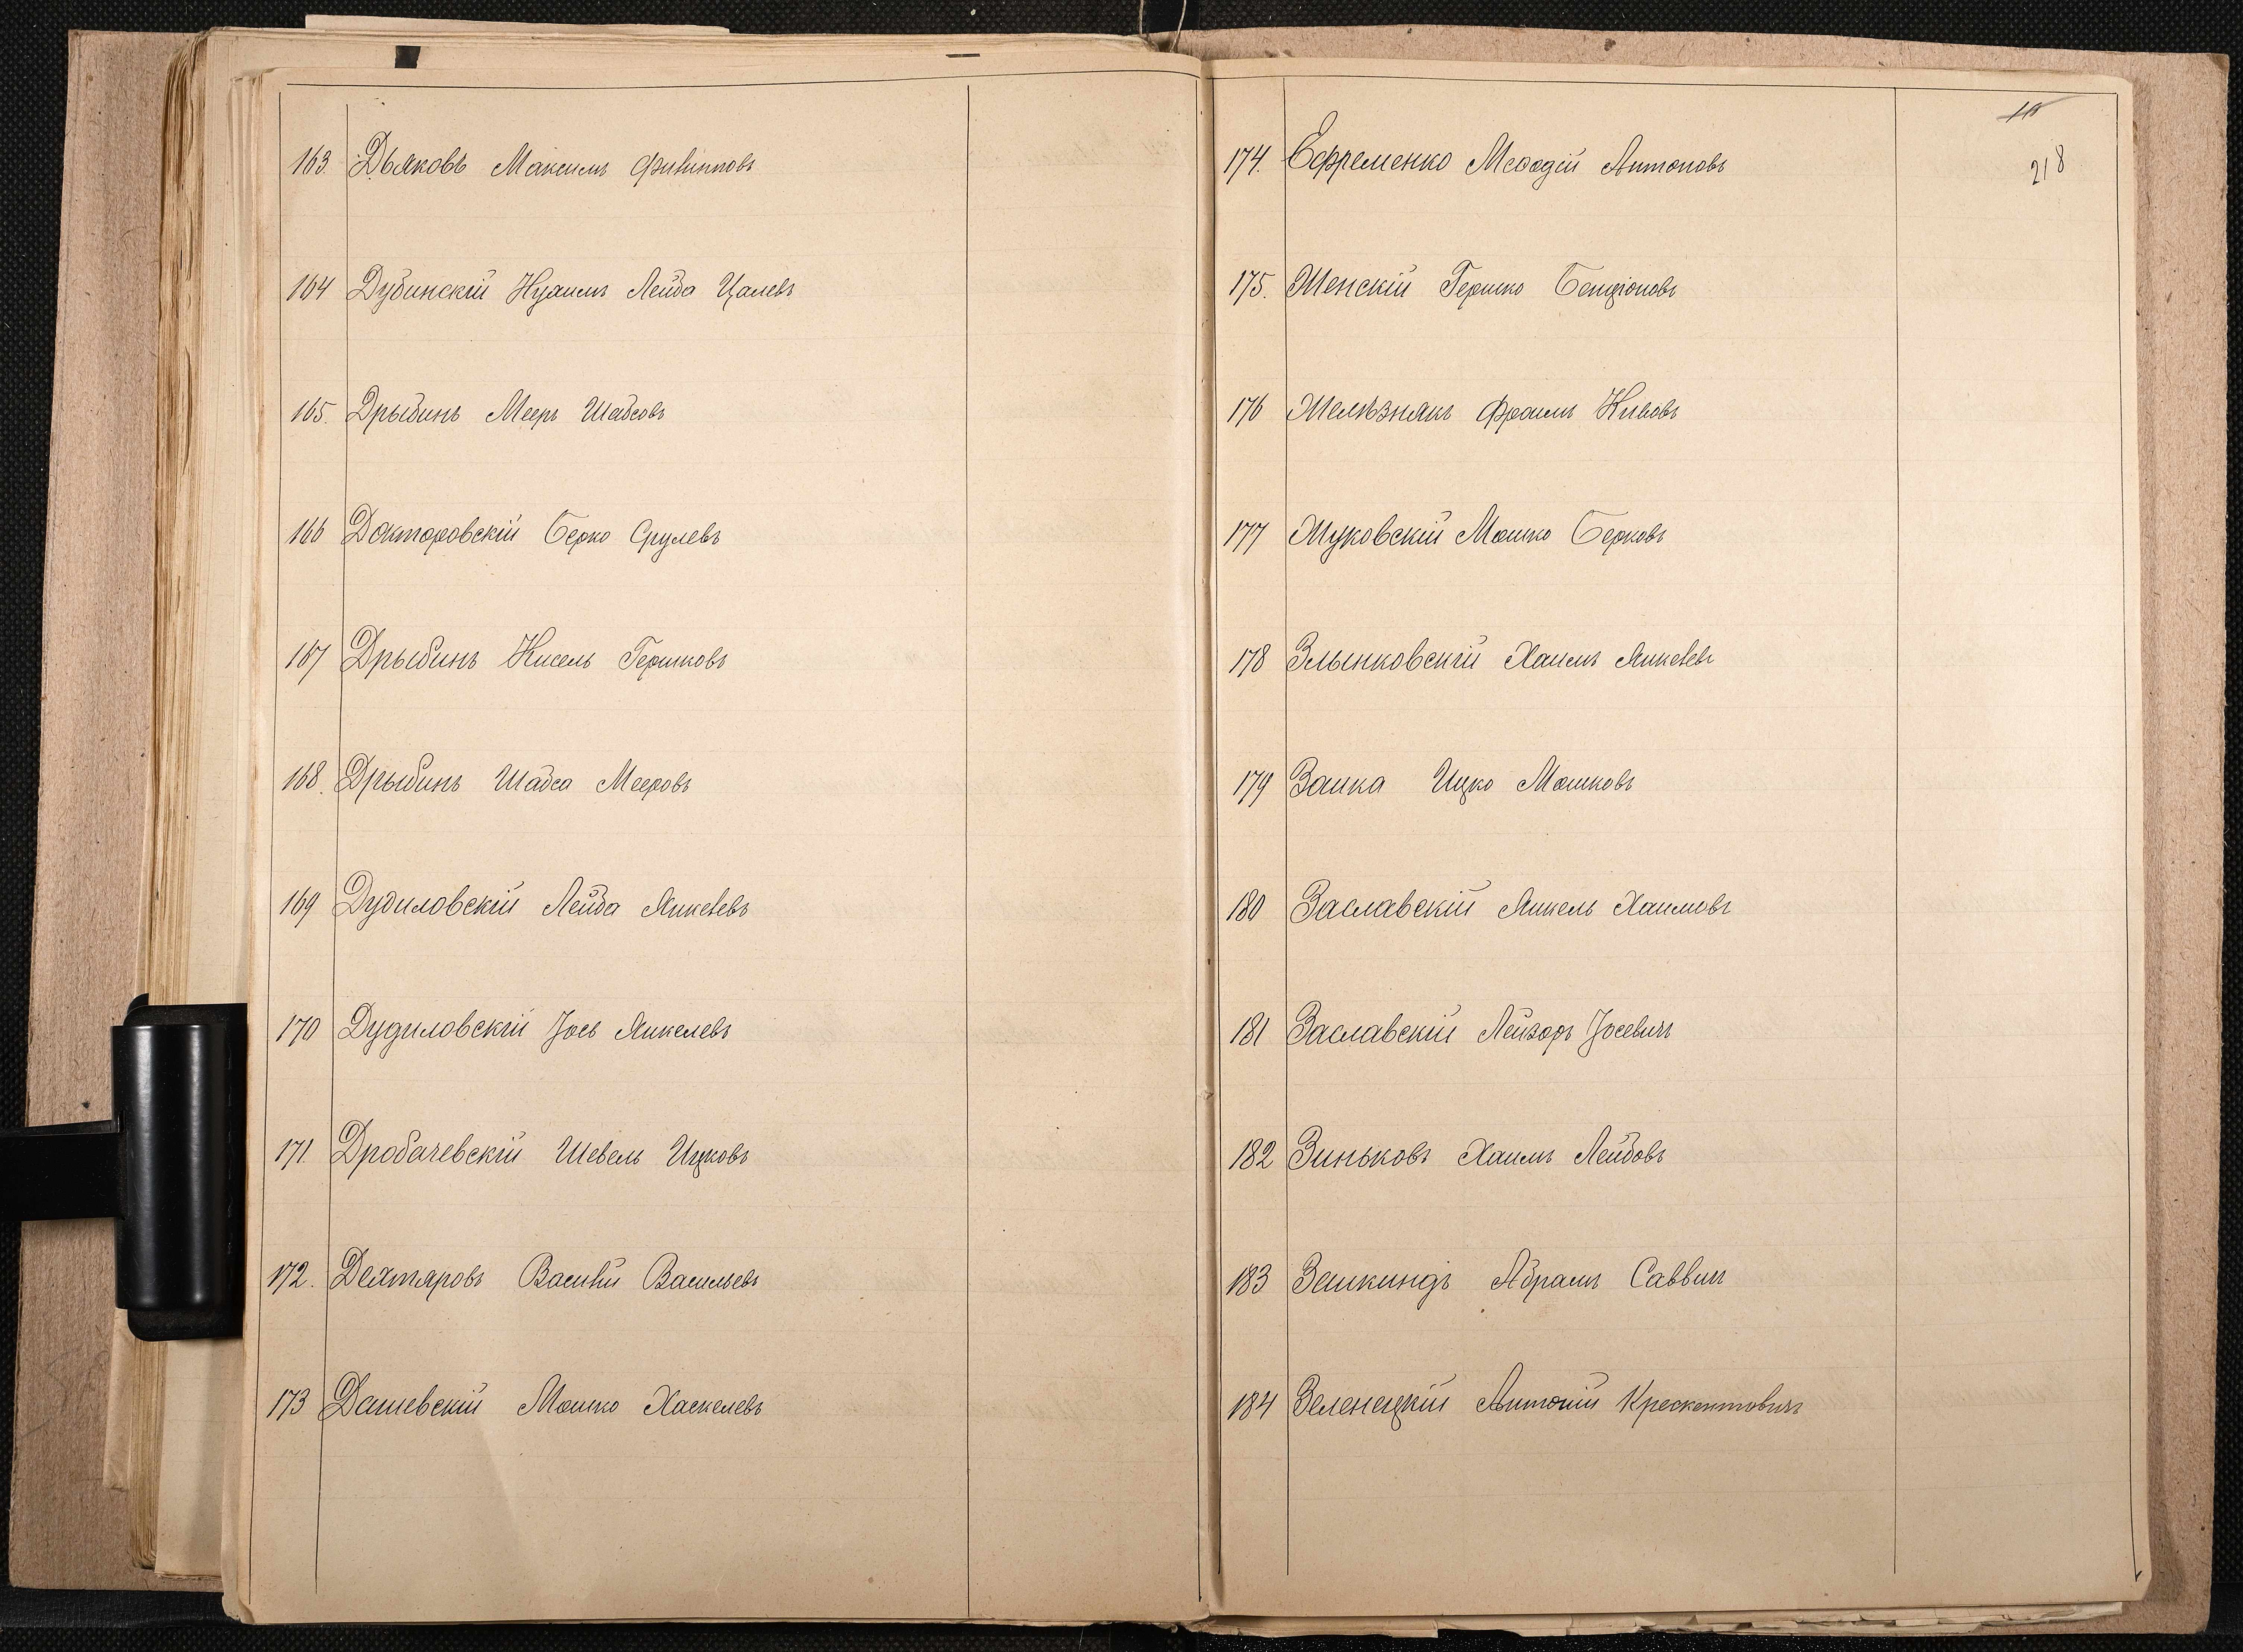 163. Дьяковъ Максимъ Филипповъ
164 Дубинскій Нухимъ Лейба Цалевъ
165. Дрыбинъ Мееръ Шабсовъ
166 Докторовскій Берко Срулевъ
167 Дрыбинъ Кисель Гершковъ
168. Дрыбинъ Шабса Мееровъ
169 Дудиловскій Лейба Янкелевъ
170 Дудиловскій Іось Янкелевъ
171. Дробачевскій Шевель Ицковъ
172. Дехтяровъ Василій Васильевъ
173 Дашевскій Мошко Хаскелевъ
218
174. Ефременко Меѳодій Антоновъ
175. Женскій Гершко Бенціоновъ
176 Желѣзнякъ Фроимъ Кивовъ
177 Жуковскій Мошко Берковъ
178 Злынковскій Хаимъ Янкелевъ
179 Заика Ицко Мошковъ
180 Заславскій Янкель Хаимовъ
181 Заславскій Лейзоръ Іосевичъ
182 Зиньковъ Хаимъ Лейбовъ
183 Зелкиндъ Абрамъ Саввич
184 Зеленецкій Антоній Крескентовичъ